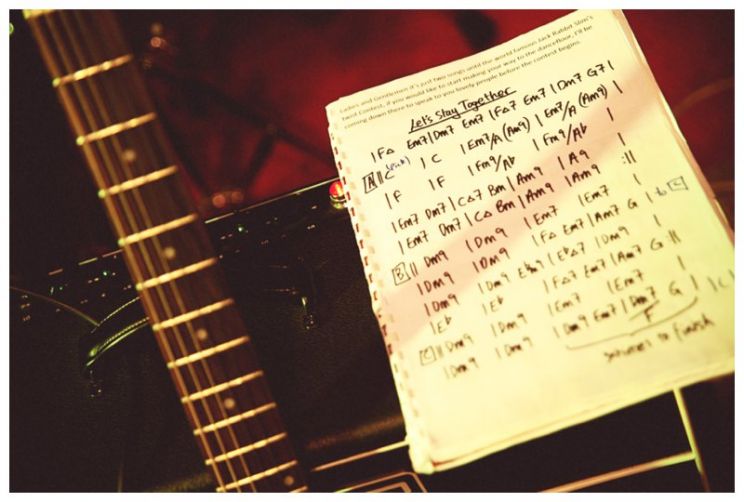 Ladies and Gentlemen it's just two songs until the world famous Jack Rabbit Slim's
twist Contest, if you would like to start making your way to the dancefloor, I'll be
coming down there to speak to you lovely people before the contest begins.
Let's Stay Together
| F△ Em7 | Dm7 Em7 | F△7 Em7 | Dm7 G7 |
[A] || C | C | Em7/A (Am9) | Em7/A (Am9) |
| F | F | Fm9/Ab | Fm9/Ab |
| Em7 Dm7 | C△7 Bm | Am9 | A9 |
| Em7 Dm7 | C△ Bm | Am9 | Am9 :||
[B] || Dm9 | Dm9 | Em7 | Em7 |
| Dm9 | Dm9 | F△ Em7 | Am7 G | to [C]
| Dm9 | Dm9 | Eb△7 | Dm9 |
| Eb | Eb | F△7 Em7 | Am7 G :||
[C] || Dm9 | Dm9 | Em7 | Em7 |
| Dm9 | Dm9 | Dm9 Em7 | Dm7 G | | C |
to finish